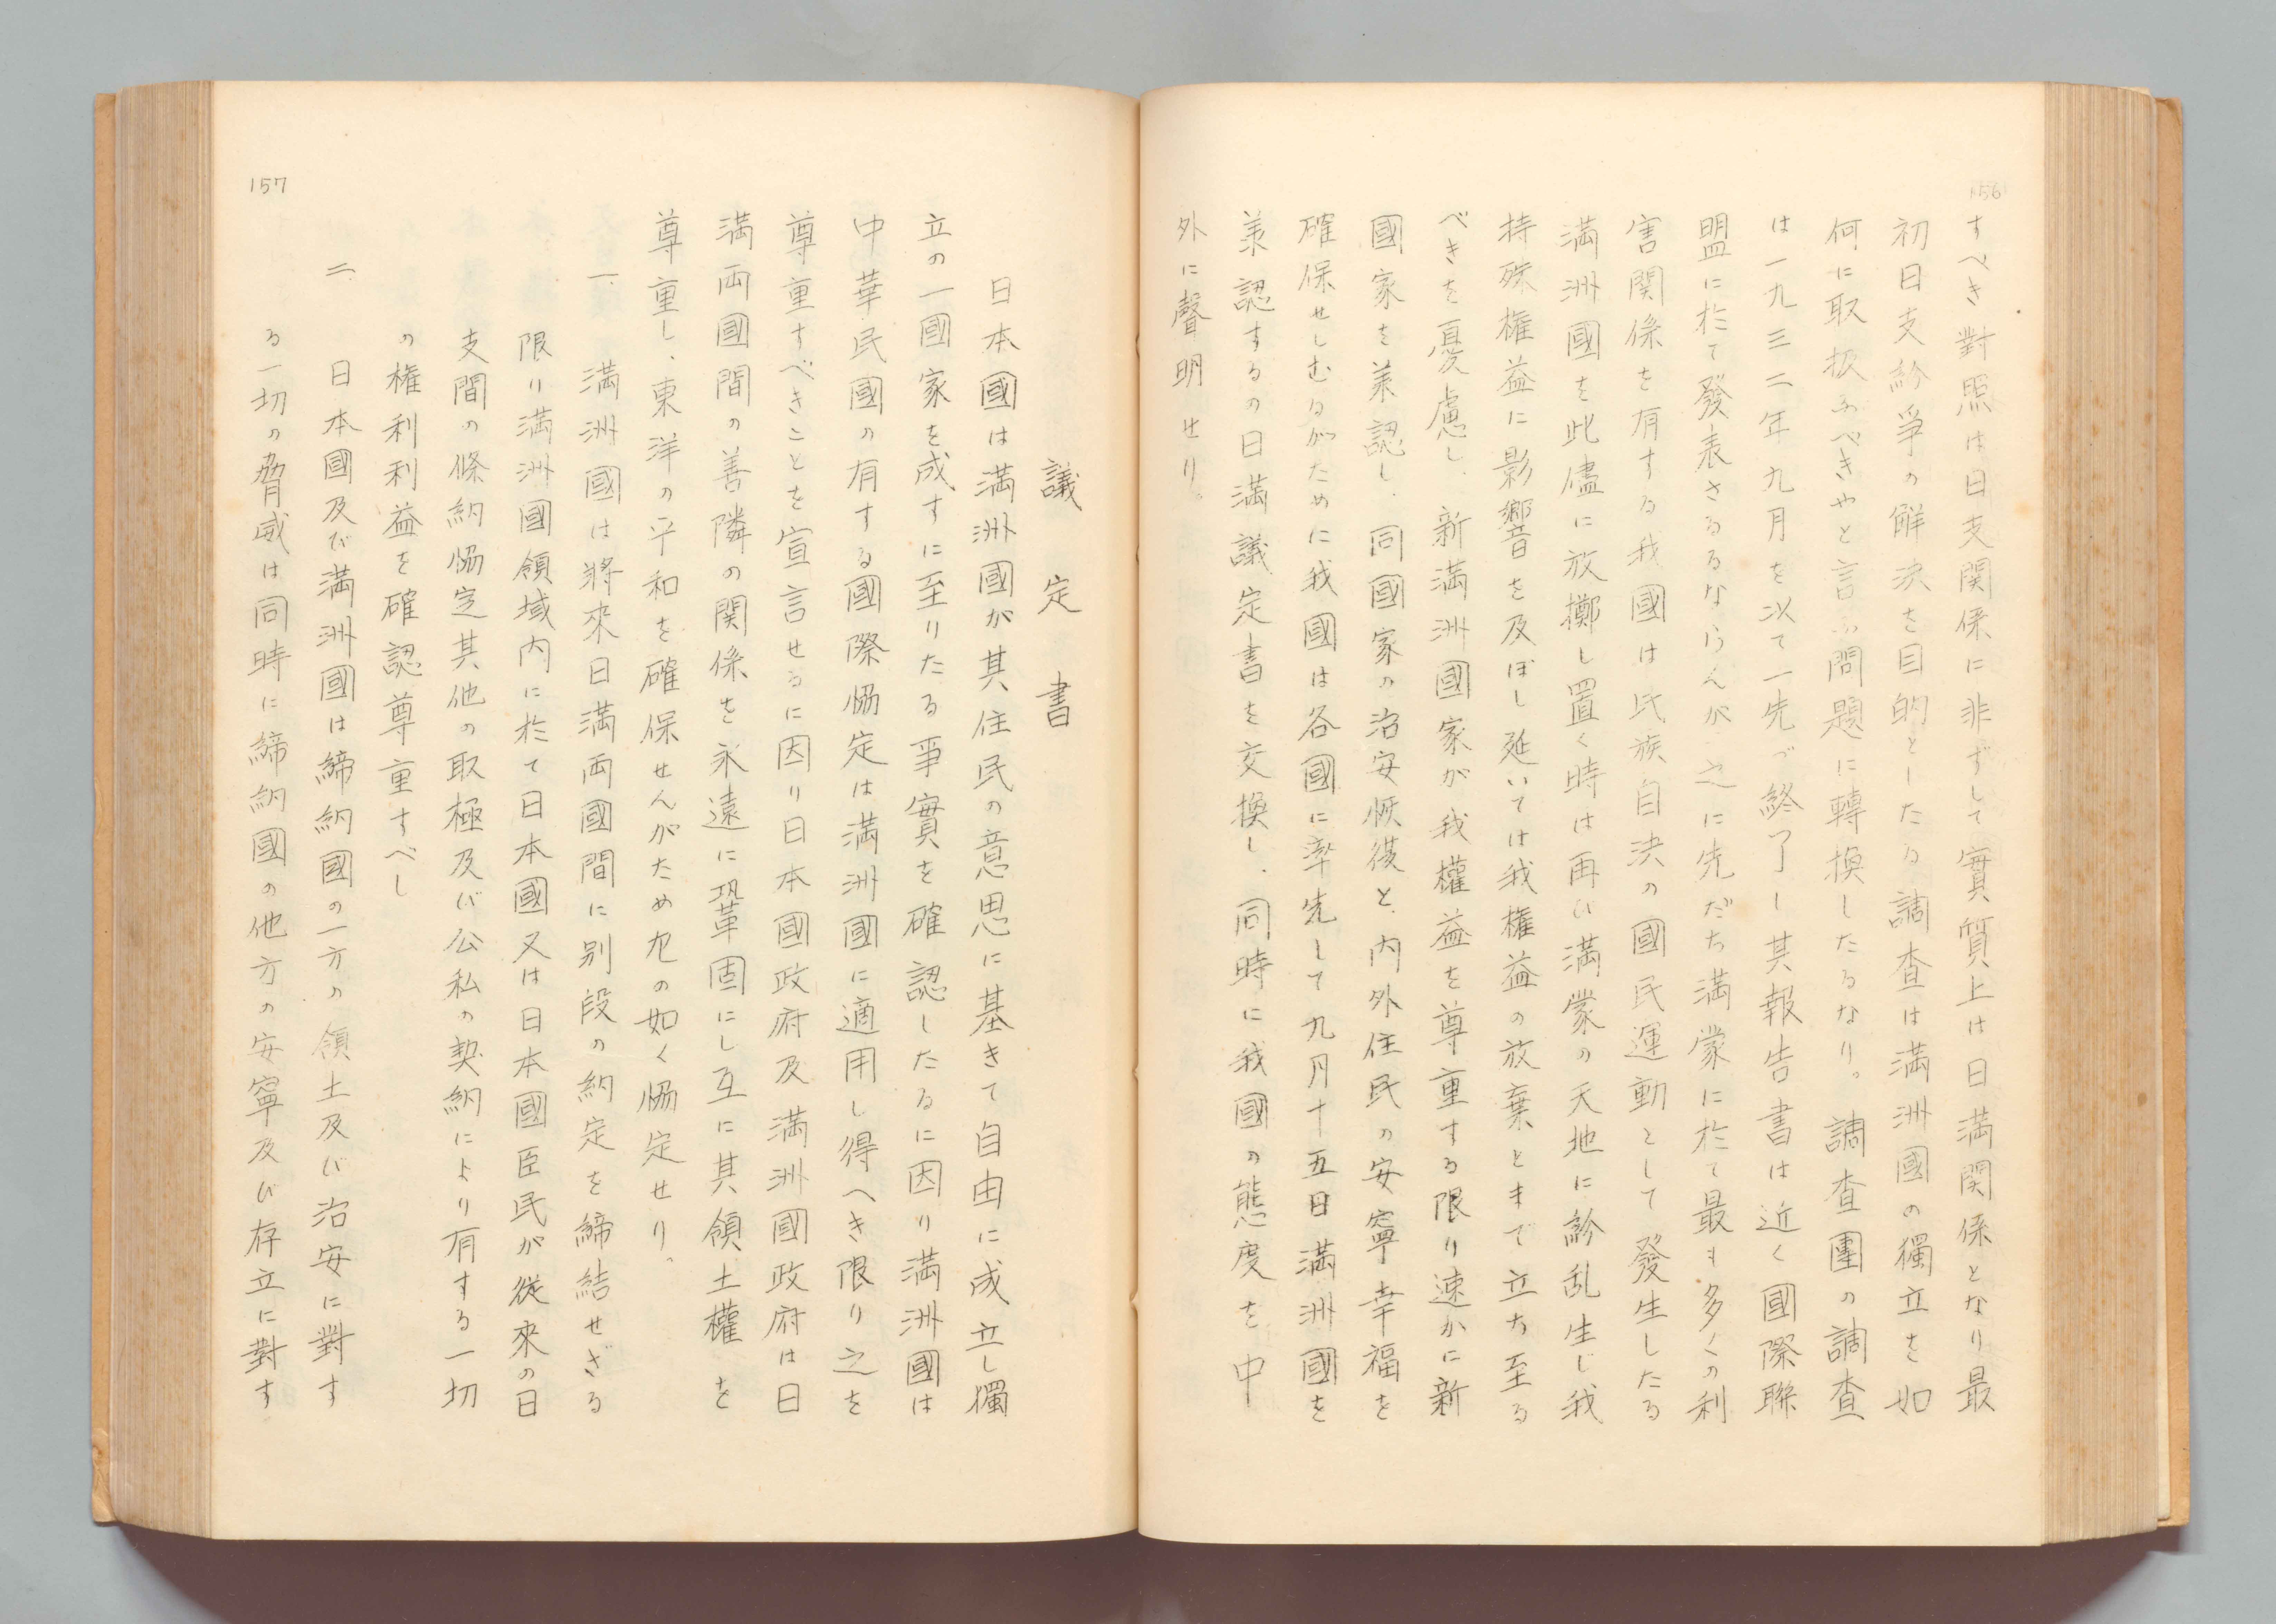 156
すべき對照は日支関係に非ずして實質上は日満関係となり最
初日支紛爭の解決を目的としたる調査は満洲國の獨立を如
何に取扱ふべきやと言ふ問題に轉換したるなり。調査團の調査
は一九三二年九月を以て一先づ終了し其報告書は近く國際聯
盟に於て發表さるるならんが之に先だち満蒙に於て最も多くの利
害関係を有する我國は民族自決の國民運動として發生したる
満洲國を此儘に放擲し置く時は再び満蒙の天地に紛乱生じ我
特殊権益に影響を及ぼし延いては我権益の放棄とまで立ち至る
べきを憂慮し、新満洲國家が我權益を尊重する限り速かに新
國家を羕認し、同國家の治安恢復と、内外住民の安寧幸福を
確保せしむるがために我國は各國に率先して九月十五日満洲國を
羕認するの日満議定書を交換し、同時に我國の態度を中
外に聲明せり。
議定書
日本國は満洲國が其住民の意思に基きて自由に成立し獨
立の一國家を成すに至りたる事實を確認したるに因り満洲國は
中華民國の有する國際協定は満洲國に適用し得へき限り之を
尊重すべきことを宣言せるに因り日本國政府及満洲國政府は日
満両國間の善隣の関係を永遠に鞏固にし互に其領土權を
尊重し、東洋の平和を確保せんがため左の如く協定せり。
一、満洲國は將來日満両國間に別段の約定を締結せざる
限り満洲國領域内に於て日本國又は日本國臣民が從來の日
支間の條約協定其他の取極及び公私の契約により有する一切
の権利利益を確認尊重すべし
二、日本國及び満洲國は締約國の一方の領土及び治安に對す
る一切の脅威は同時に締約國の他方の安寧及び存立に對す
157